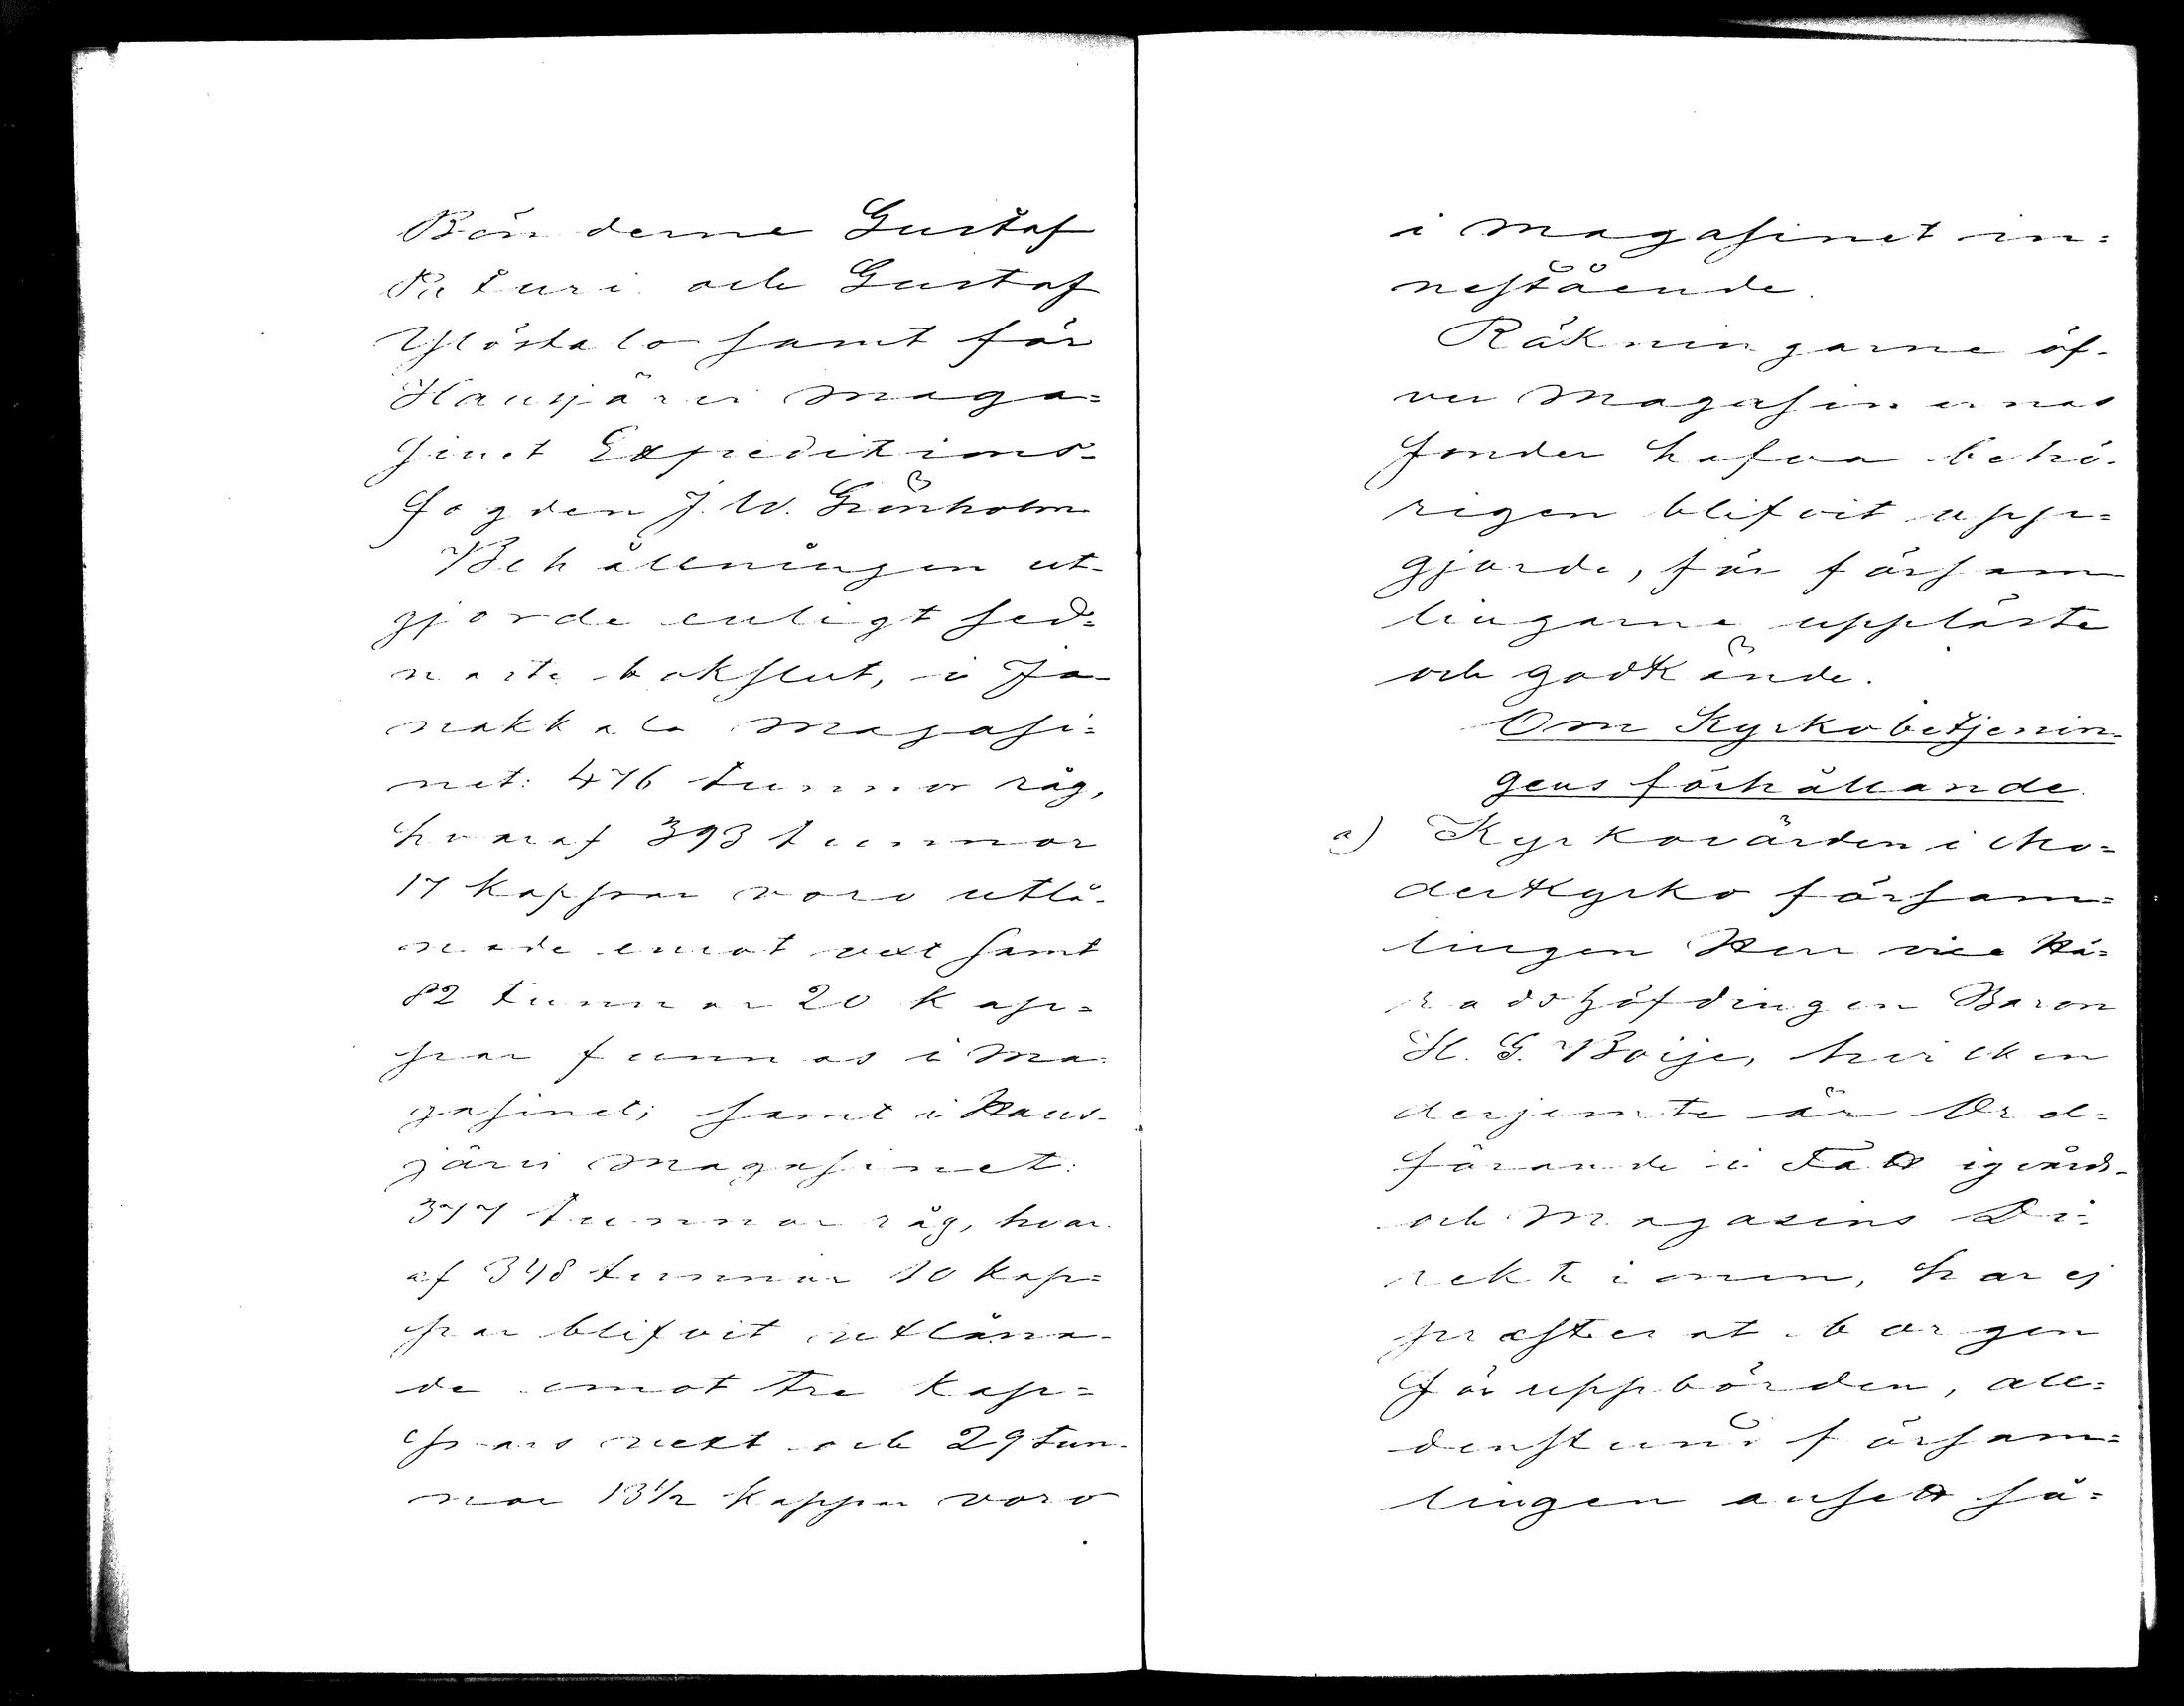 Bönderne Gustaf
Paturi och Gustaf
Ylöstalo samt för
Hausjärvi maga=
sinet Expeditions-
fogden J. W. Grönholm
Behållningen ut-
gjorde enligt sed=
naste bokslut, i Ja-
nakkala magasi=
net: 476 tunnor råg,
hvaraf 393 tunnor
17 kappar voro utlå-
nade emot vext samt
82 tunnor 20 kap=
par funnos i ma-
gasinet; samt i Haus-
järvi magasinet:
377 tunnor råg, hvar-
af 348 tunnor 10 kap=
par blifvit utlåna-
de emot tre kap=
pars vext och 29 tun-
nor 13½ kappar voro
i magasinet in=
nestående.
Räkningarne öf-
ver magasinernas
fonder hafva behö-
rigen blifvit upp=
gjorde, för försam
lingarne uppläste
och godkände.
Om Kyrkobetjenin-
gens förhållande.
a) Kyrkovärden i Mo=
derkyrko försam=
lingen Herr vice Hä=
radshöfdingen Baron
H. G. Boije, hvilken
derjemte är Ord=
förande i Fattigvårds-
och Magasins Di=
rektionen, har ej
præsterat borgen
för uppbörden, all=
denstund försam=
lingen ansett så=